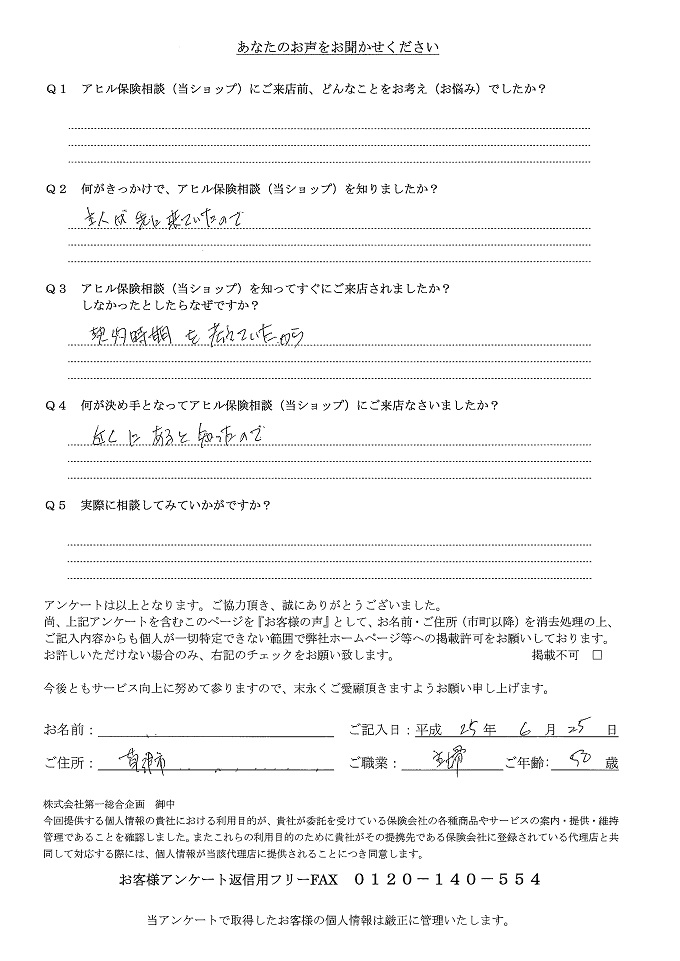 あなたのお声をお聞かせください
Q1 アヒル保険相談（当ショップ）にご来店前、どんなことをお考え（お悩み）でしたか？
Q2 何がきっかけで、アヒル保険相談（当ショップ）を知りましたか？
主人が先に来ていたので
Q3 アヒル保険相談（当ショップ）を知ってすぐにご来店されましたか？
しなかったとしたらなぜですか？
契約時期を考えていたから
Q4 何が決め手となってアヒル保険相談（当ショップ）にご来店なさいましたか？
近くにあると知ったので
Q5 実際に相談してみていかがですか？
アンケートは以上となります。ご協力頂き、誠にありがとうございました。
尚、上記アンケートを含むこのページを『お客様の声』として、お名前・ご住所（市町以降）を消去処理の上、
ご記入内容からも個人が一切特定できない範囲で弊社ホームページ等への掲載許可をお願いしております。
お許しいただけない場合のみ、右記のチェックをお願い致します。 掲載不可 □
今後ともサービス向上に努めて参りますので、末永くご愛顧頂きますようお願い申し上げます。
お名前： ご記入日：平成 25 年 6 月 25 日
ご住所： 草津市 ご職業： 主婦 ご年齢： 50 歳
株式会社第一総合企画 御中
今回提供する個人情報の貴社における利用目的が、貴社が委託を受けている保険会社の各種商品やサービスの案内・提供・維持
管理であることを確認しました。またこれらの利用目的のために貴社がその提携先である保険会社に登録されている代理店と共
同して対応する際には、個人情報が当該代理店に提供されることにつき同意します。
お客様アンケート返信用フリーFAX 0120－140－554
当アンケートで取得したお客様の個人情報は厳正に管理いたします。